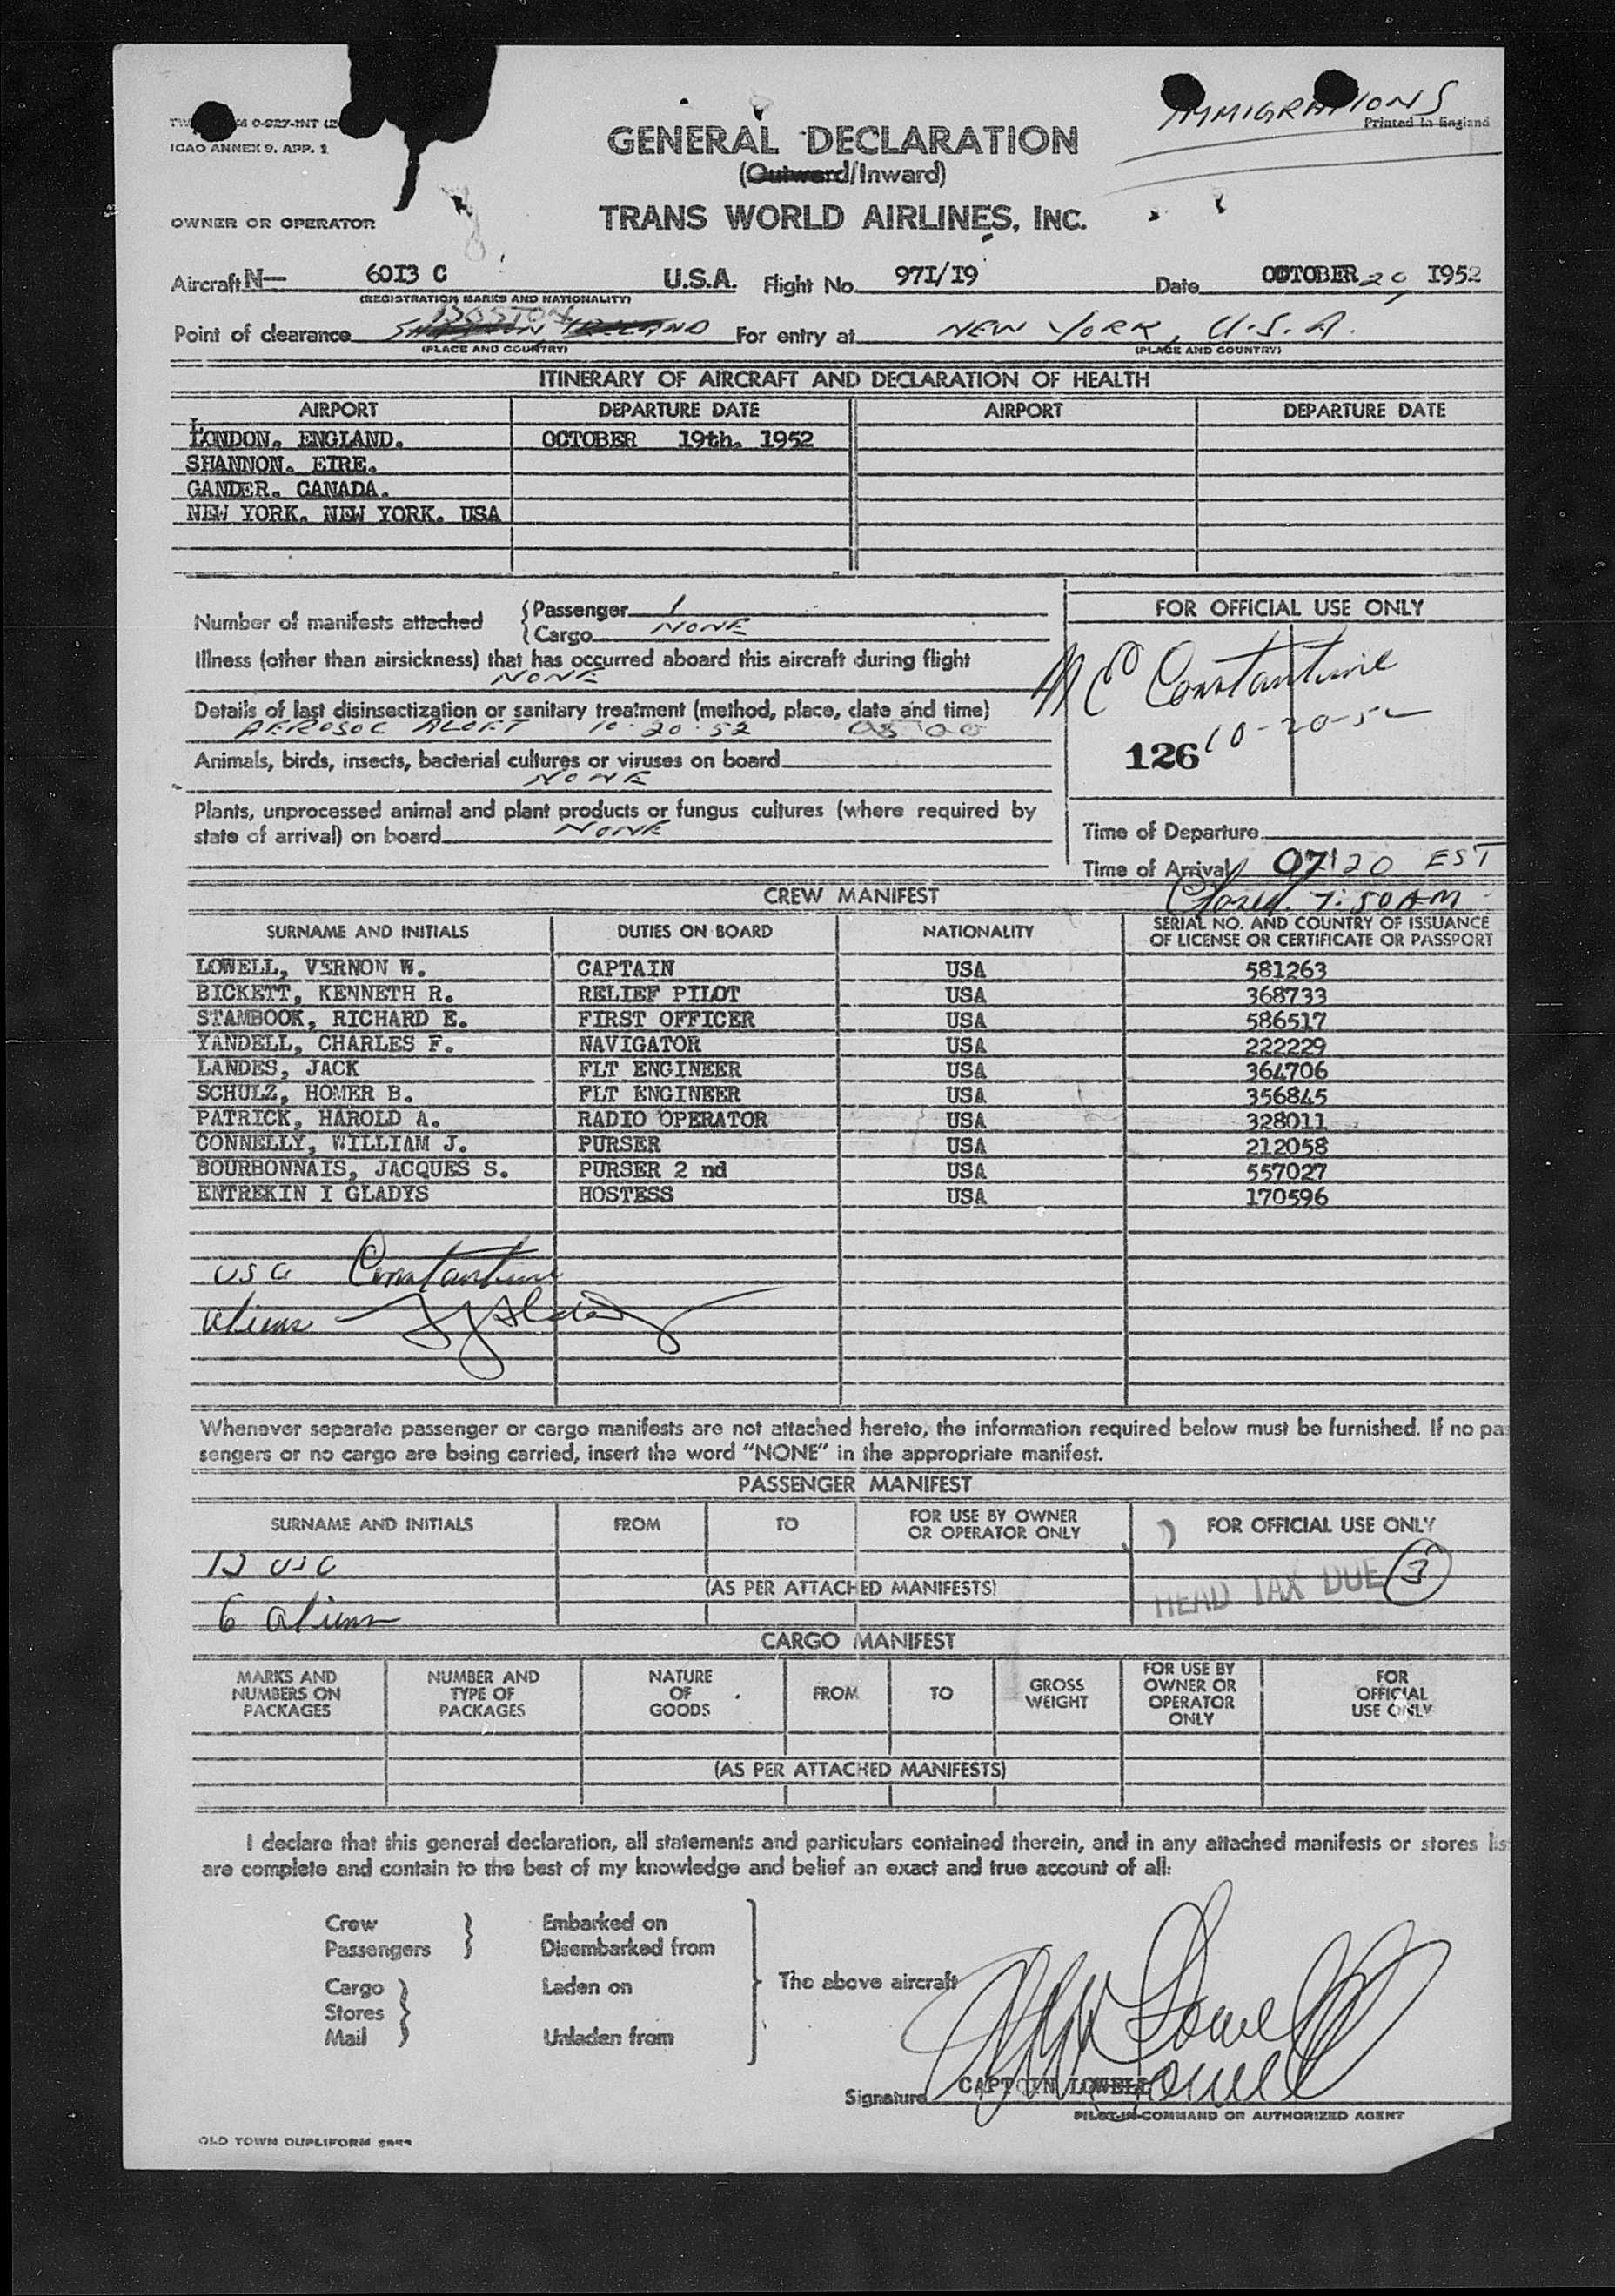 ICAO ANNEX 9. APP. 1
IMMIGRATIONS
Printed in England
GENERAL DECLARATION
(Outward/Inward)
OWNER OR OPERATOR
TRANS WORLD AIRLINES, INC.
Aircraft N— 6013 C U.S.A. Flight No. 971/19 Date OCTOBER 20, 1952
(REGISTRATION MARKS AND NATIONALITY)
BOSTON
Point of clearance SHANNON IRELAND For entry at NEW YORK, U.S.A.
(PLACE AND COUNTRY) (PLACE AND COUNTRY)
ITINERARY OF AIRCRAFT AND DECLARATION OF HEALTH
AIRPORT DEPARTURE DATE AIRPORT DEPARTURE DATE
LONDON. ENGLAND. OCTOBER 19th. 1952
SHANNON. EIRE.
GANDER. CANADA.
NEW YORK. NEW YORK. USA
Number of manifests attached { Passenger 1
{ Cargo NONE
Illness (other than airsickness) that has occurred aboard this aircraft during flight
NONE
Details of last disinsectization or sanitary treatment (method, place, date and time)
AEROSOL ALOFT 10-20-52 0500
Animals, birds, insects, bacterial cultures or viruses on board
NONE
Plants, unprocessed animal and plant products or fungus cultures (where required by
state of arrival) on board NONE
FOR OFFICIAL USE ONLY
Constantine
126 10-20-52
Time of Departure
Time of Arrival 07:20 EST
Closed. 7:50 AM
CREW MANIFEST
SURNAME AND INITIALS DUTIES ON BOARD NATIONALITY SERIAL NO. AND COUNTRY OF ISSUANCE OF LICENSE OR CERTIFICATE OR PASSPORT
LOWELL, VERNON W. CAPTAIN USA 581263
BICKETT, KENNETH R. RELIEF PILOT USA 368733
STAMBOOK, RICHARD E. FIRST OFFICER USA 586517
YANDELL, CHARLES F. NAVIGATOR USA 222229
LANDES, JACK FLT ENGINEER USA 364706
SCHULZ, HOMER B. FLT ENGINEER USA 356845
PATRICK, HAROLD A. RADIO OPERATOR USA 328011
CONNELLY, WILLIAM J. PURSER USA 212058
BOURBONNAIS, JACQUES S. PURSER 2 nd USA 557027
ENTREKIN I GLADYS HOSTESS USA 170596
USC Constantine
aliens
Whenever separate passenger or cargo manifests are not attached hereto, the information required below must be furnished. If no pas
sengers or no cargo are being carried, insert the word "NONE" in the appropriate manifest.
PASSENGER MANIFEST
SURNAME AND INITIALS FROM TO FOR USE BY OWNER OR OPERATOR ONLY FOR OFFICIAL USE ONLY
12 USC
(AS PER ATTACHED MANIFESTS) HEAD TAX DUE 3
6 aliens
CARGO MANIFEST
MARKS AND NUMBERS ON PACKAGES NUMBER AND TYPE OF PACKAGES NATURE OF GOODS FROM TO GROSS WEIGHT FOR USE BY OWNER OR OPERATOR ONLY FOR OFFICIAL USE ONLY
(AS PER ATTACHED MANIFESTS)
I declare that this general declaration, all statements and particulars contained therein, and in any attached manifests or stores lis
are complete and contain to the best of my knowledge and belief an exact and true account of all:
Crew } Embarked on
Passengers } Disembarked from
Cargo } Laden on
Stores }
Mail } Unladen from
The above aircraft
Lowell
Signature CAPTAIN LOWELL
PILOT-IN-COMMAND OR AUTHORIZED AGENT
OLD TOWN DUPLIFORM